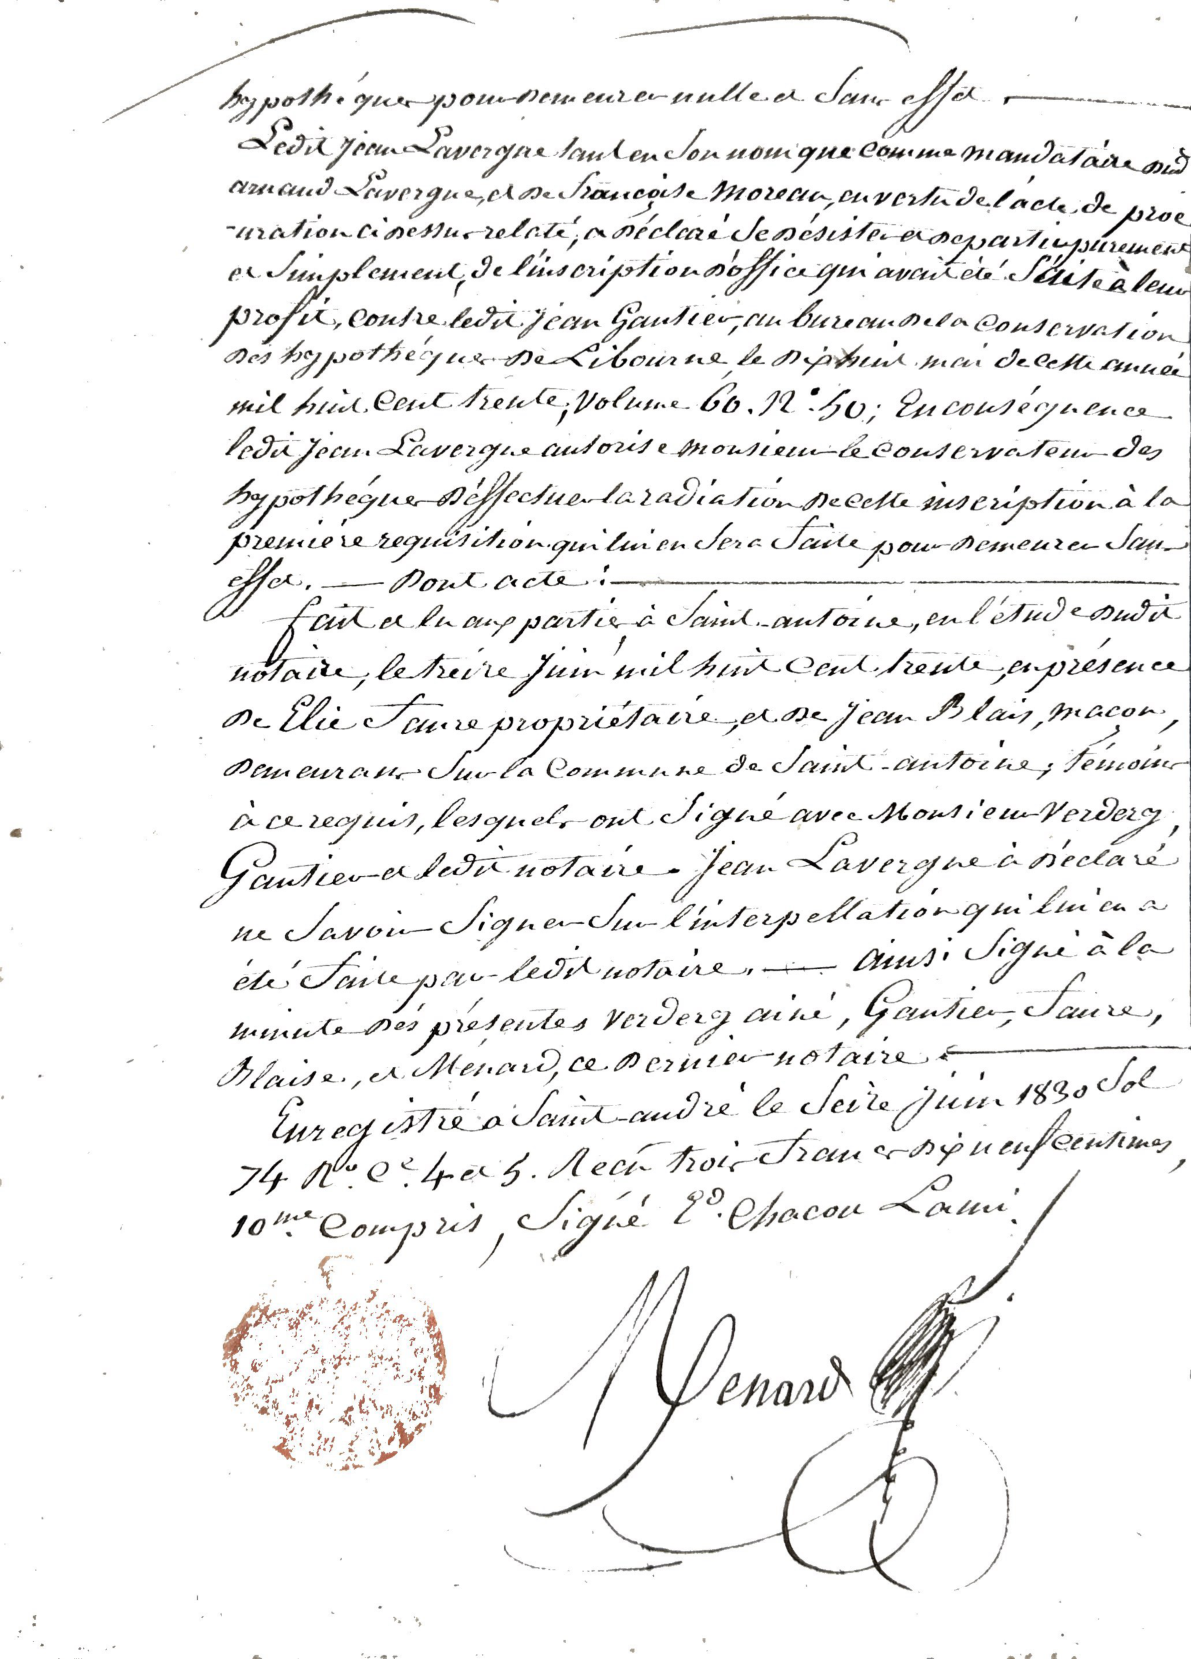 hypothéques pour demeurer nulle et sans effet.
Ledit Jean Lavergne tant en son nom que comme mandataire dud
arnaud Lavergne, et de françoise Moreau, en vertu de l'acte de proc
-uration ci dessus relaté, a déclaré se désister et departir purement
et simplement, de l'inscription d'office qui avait été faite à leur
profit, contre ledit Jean Gautier, au bureau de la Conservation
des hypothéques de Libourne, le dix huit mai de cette année
mil huit Cent trente, volume 60. N°. 50; En conséquence
ledit Jean Lavergne autorise monsieur le Conservateur des
hypothéques d'éffectuer la radiation de cette inscription à la
première requisition qui lui en sera faite pour demeurer sans
effet. — Dont acte :
fait et lu aux parties à Saint-antoine, en l'étude dudit
notaire, le treize juin mil huit Cent trente, en présence
de Elie Faure propriétaire, et de Jean Blais, maçon,
demeurans sur la Commune de Saint-antoine, témoins
à ce requis, lesquels ont signé avec Monsieur Verderg,
Gautier et ledit notaire. Jean Lavergne à déclaré
ne savoir signer sur l'interpellation qui lui en a
été faite par ledit notaire. — ainsi signé à la
minute dés présentes Verderg ainé, Gautier, Faure,
Blaise, et Menard, ce dernier notaire.
Enregistré à Saint-andré le Seize juin 1830 fol
74 R°. C°. 4 et 5. Recu trois francs dix neuf centimes,
10me. Compris, signé Ed. Chacou Lami.
Menard